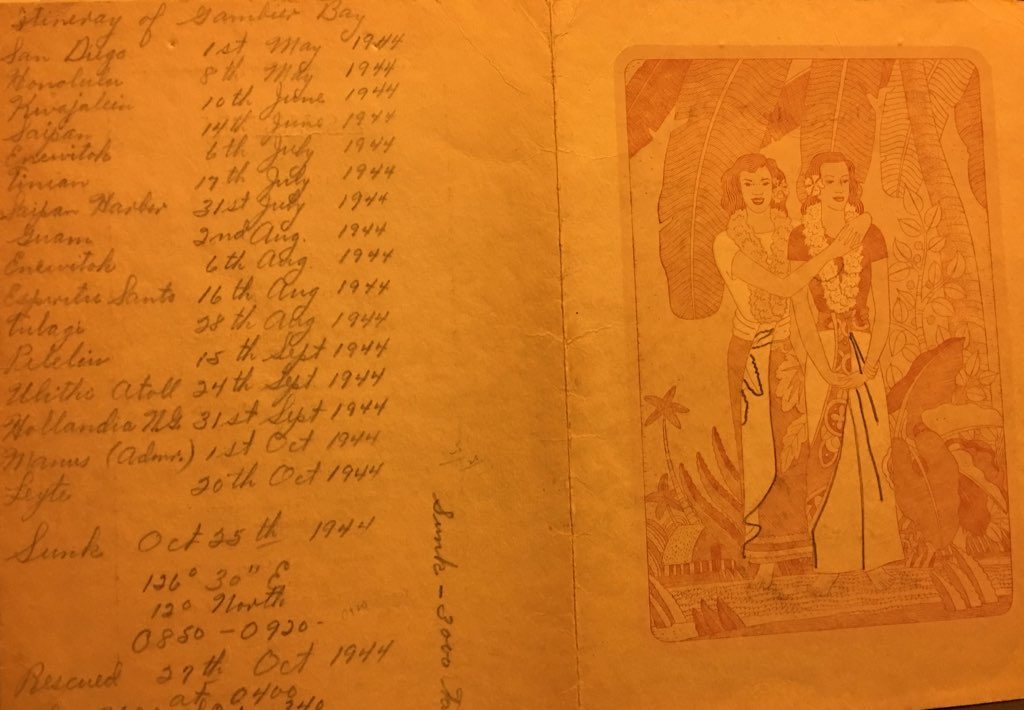 Itineray of Gambier Bay
San Diego 1st May 1944
Honolulu 8th May 1944
Kwajalein 10th June 1944
Saipan 14th June 1944
Enewitok 6th July 1944
Tinian 17th July 1944
Saipan Harbor 31st July 1944
Guam 2nd Aug. 1944
Enewitok 6th Aug. 1944
Espiritu Santo 16th Aug 1944
Tulagi 28th Aug 1944
Peleliu 15th Sept 1944
Ulitho Atoll 24th Sept. 1944
Hollandia N.G. 31st Sept 1944
Manus (Admr.) 1st Oct 1944
Leyte 20th Oct 1944
Sunk Oct 25th 1944
126° 30" E
12° North
0850 - 0920-
Rescued 27th Oct 1944
at 0400
340
Sunk - 3000